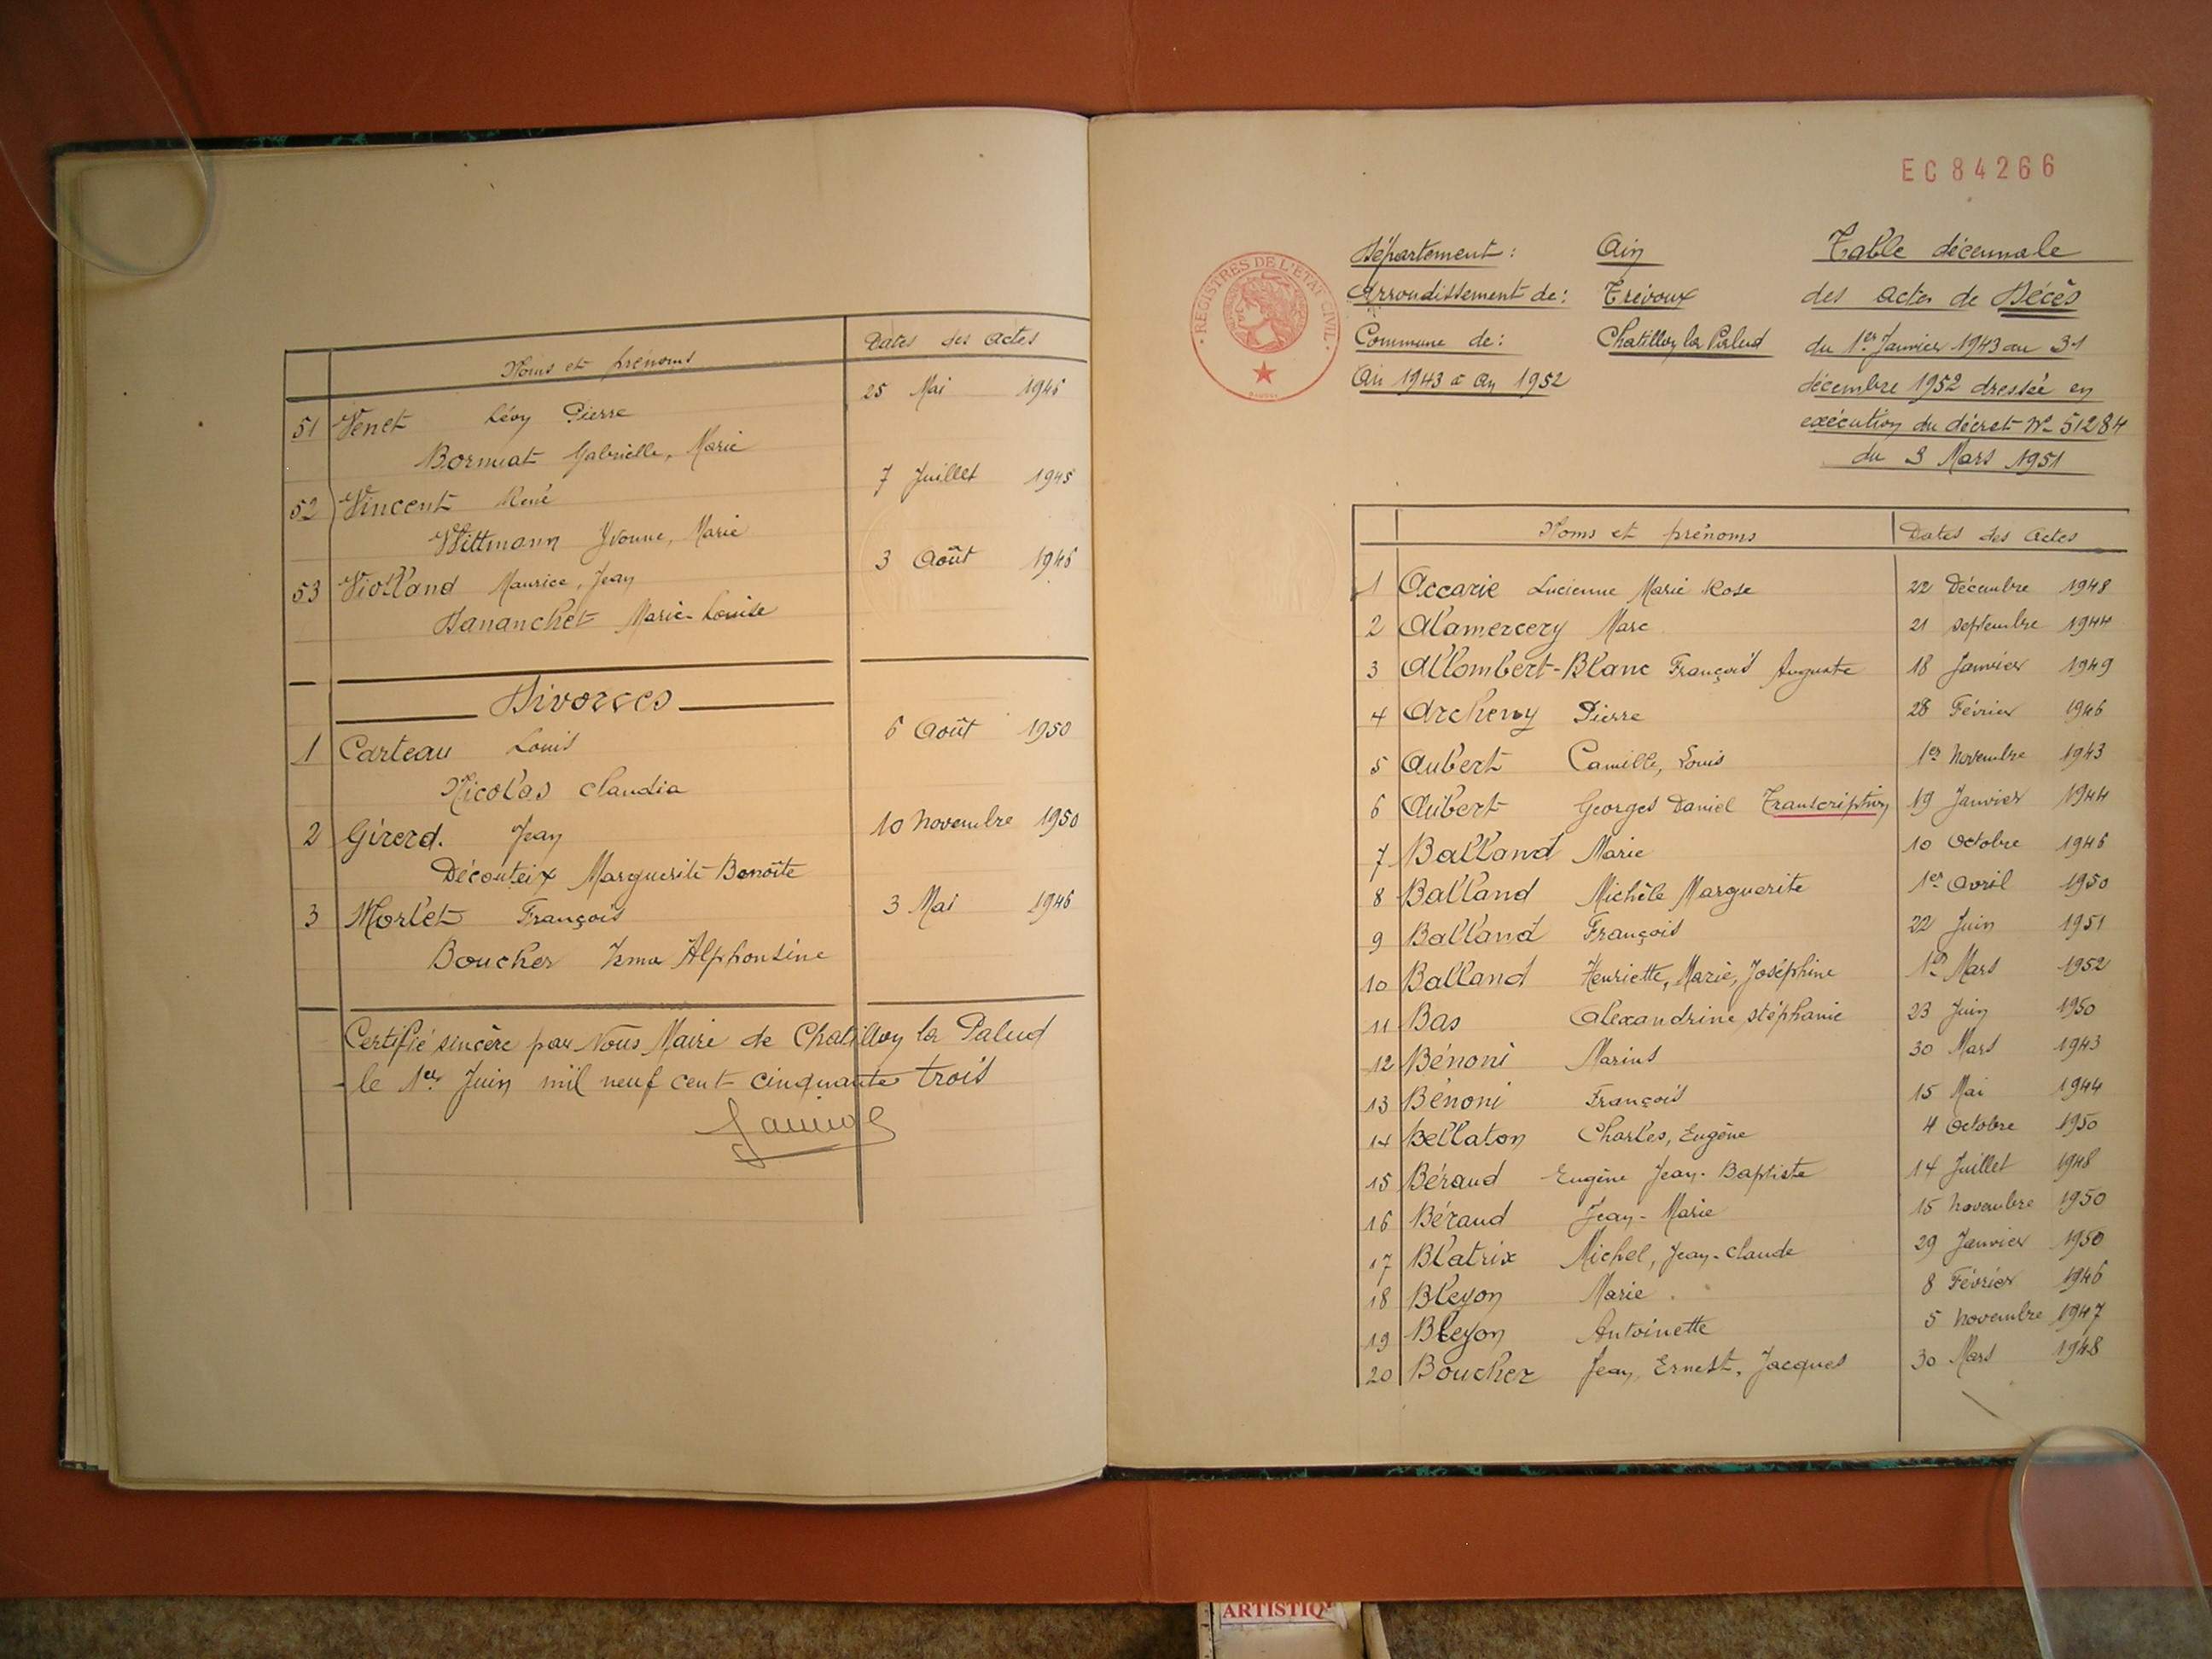 Noms et prénoms Dates des Actes
51 Venet Léon Pierre 25 Mai 1946
Bornuat Gabrielle, Marie
52 Vincent René 7 Juillet 1945
Wittmann Yvonne, Marie
53 Violland Maurice, Jean 3 Août 1946
Dananchet Marie-Louise
Divorces
1 Carteau Louis 6 Août 1950
Nicolas Claudia
2 Girerd. Jean 10 Novembre 1950
Découteix Marguerite Benoîte
3 Morlet François 3 Mai 1946
Boucher Irma Alphonsine
Certifié sincère par Nous Maire de Chatillon la Palud
le 1er Juin mil neuf cent cinquante trois
EC84266
REGISTRES DE L'ETAT CIVIL
Département: Ain
Arrondissement de: Trévoux
Commune de: Chatillon la Palud
An 1943 à An 1952
Table décennale
des actes de Décès
du 1er Janvier 1943 au 31
décembre 1952 dressée en
exécution du décret No 51284
du 3 Mars 1951
Noms et prénoms Dates des Actes
1 Accarie Lucienne Marie Rose 22 Décembre 1948
2 Alamercery Marc 21 Septembre 1944
3 Allombert-Blanc François Auguste 18 Janvier 1949
4 Archeny Pierre 28 Février 1946
5 Aubert Camille, Louis 1er Novembre 1943
6 Aubert Georges Daniel Transcription 19 Janvier 1944
7 Balland Marie 10 Octobre 1946
8 Balland Michèle Marguerite 1er Avril 1950
9 Balland François 22 Juin 1951
10 Balland Henriette, Marie, Joséphine 1er Mars 1952
11 Bas Alexandrine Stéphanie 23 Juin 1950
12 Bénoni Marius 30 Mars 1943
13 Bénoni François 15 Mai 1944
14 Bellaton Charles, Eugène 4 Octobre 1950
15 Béraud Eugène Jean-Baptiste 14 Juillet 1948
16 Béraud Jean-Marie 15 Novembre 1950
17 Blatrix Michel, Jean-Claude 29 Janvier 1950
18 Bleyon Marie 8 Février 1946
19 Bleyon Antoinette 5 Novembre 1947
20 Boucher Jean, Ernest, Jacques 30 Mars 1948
ARTISTIQ